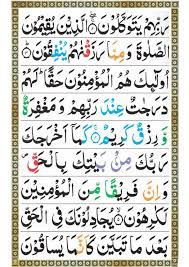 رَبِّهِمْ يَتَوَكَّلُوْنَ ۝ الَّذِيْنَ يُقِيْمُوْنَ
الصَّلٰوةَ وَمِمَّا رَزَقْنٰهُمْ يُنْفِقُوْنَ ۝
اُولٰٓئِكَ هُمُ الْمُؤْمِنُوْنَ حَقًّا ؕ لَهُمْ
دَرَجٰتٌ عِنْدَ رَبِّهِمْ وَمَغْفِرَةٌ
وَّرِزْقٌ كَرِيْمٌ ۝ كَمَآ اَخْرَجَكَ
رَبُّكَ مِنْۢ بَيْتِكَ بِالْحَقِّ
وَاِنَّ فَرِيْقًا مِّنَ الْمُؤْمِنِيْنَ
لَكٰرِهُوْنَ ۝ يُجَادِلُوْنَكَ فِى الْحَقِّ
بَعْدَ مَا تَبَيَّنَ كَاَنَّمَا يُسَاقُوْنَ